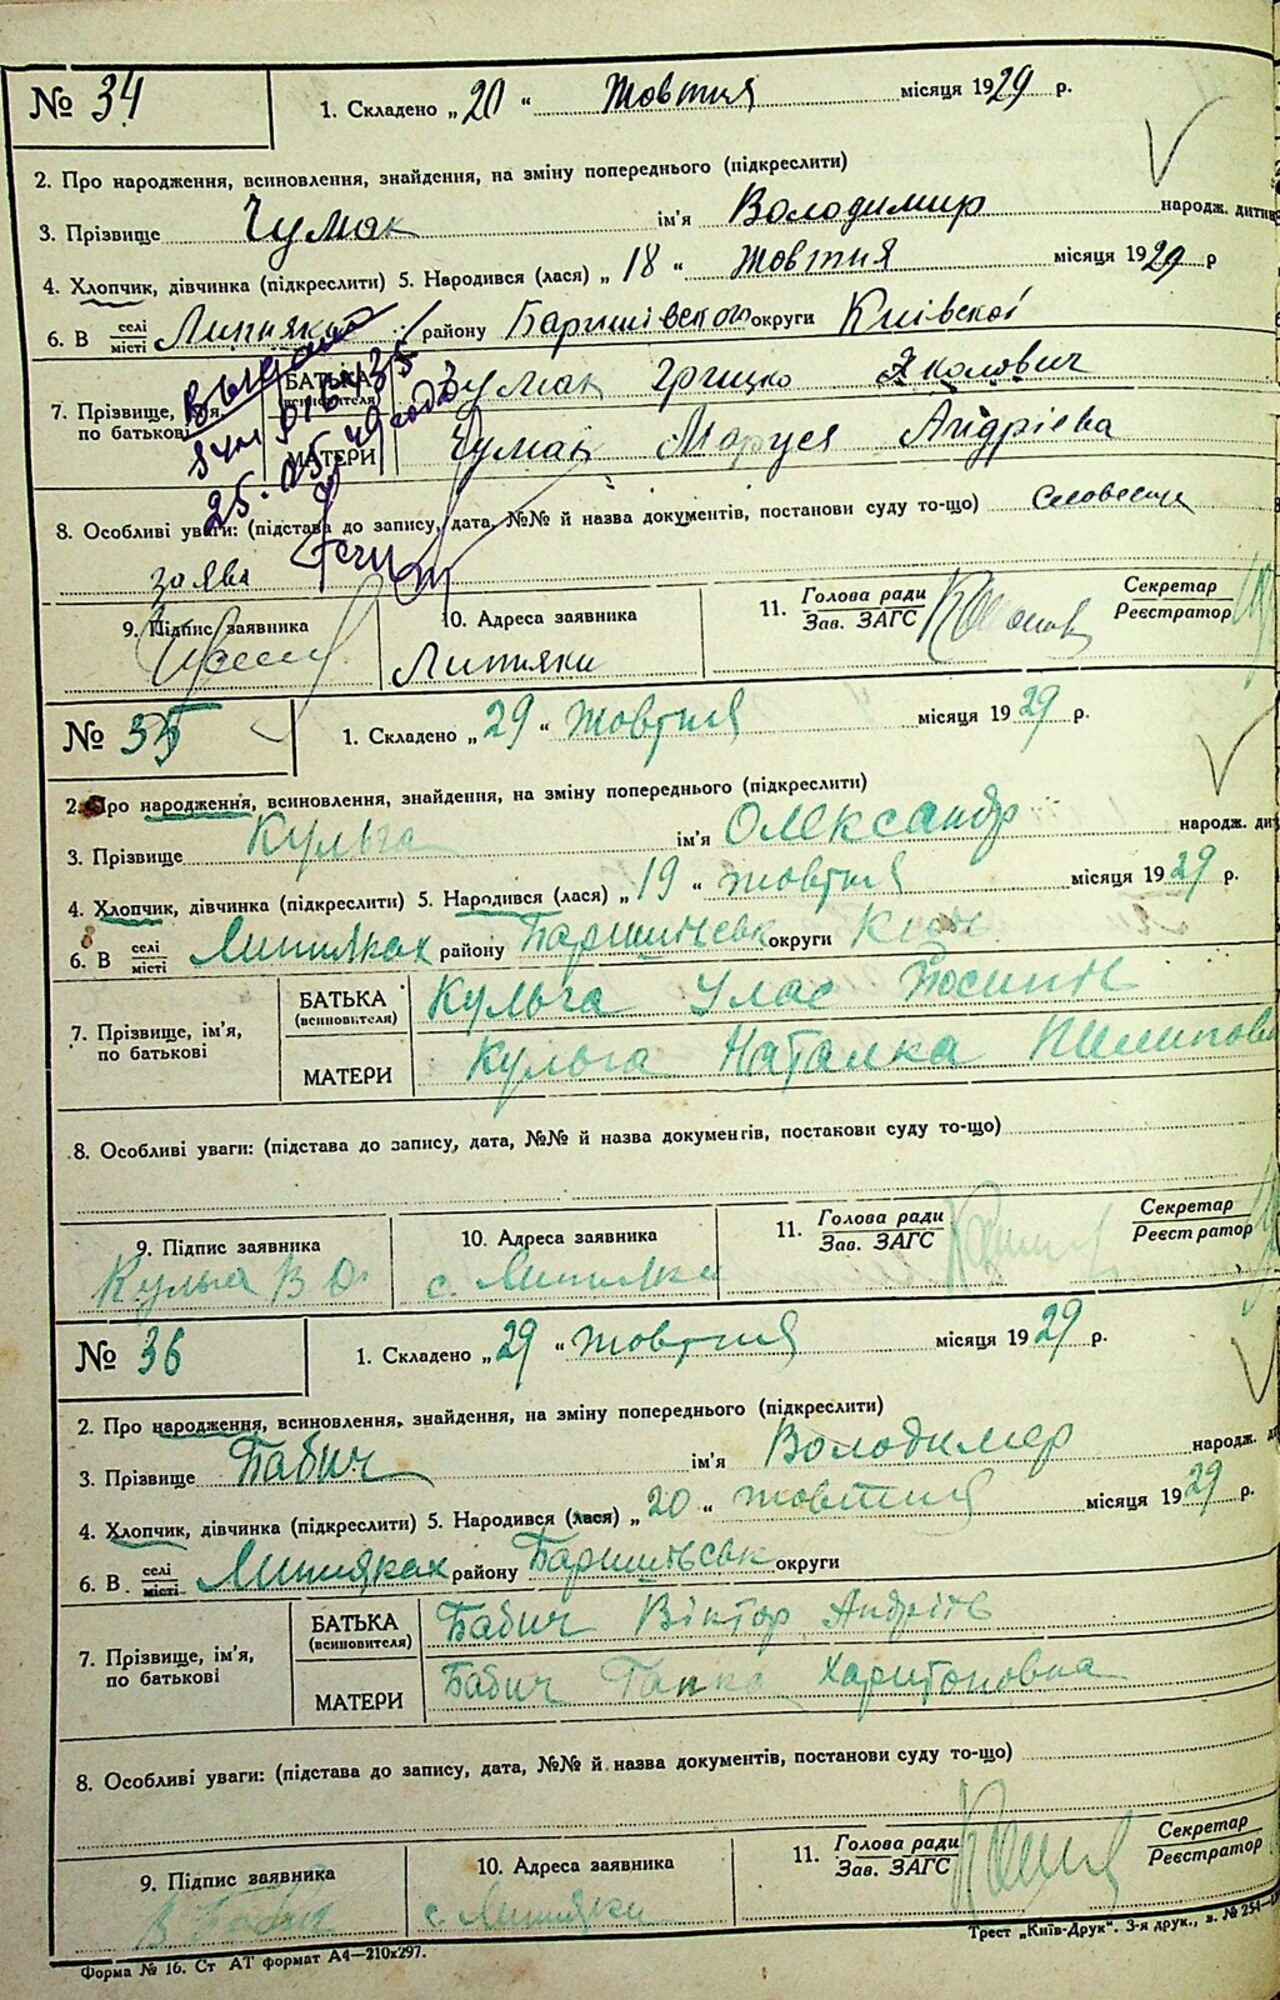 № 34
1. Складено „ 20 “ Жовтня місяця 1929 р.
2. Про народження, всиновлення, знайдення, на зміну попереднього (підкреслити)
3. Прізвище Чумак ім'я Володимир народж. дитин
4. Хлопчик, дівчинка (підкреслити) 5. Народився (лася) „ 18 “ Жовтня місяця 1929 р
6. В селі місті Липняках району Баришівськом округи Київскої
7. Прізвище, ім'я, по батькові
БАТЬКА (всиновителя) Чумак Грицко
МАТЕРИ Чумак Маруся Андрієва
25.05.49 года
8. Особливі уваги: (підстава до запису, дата, №№ й назва документів, постанови суду то-що) Словесна
заява
9. Підпис заявника
10. Адреса заявника Липняки
11. Голова ради Зав. ЗАГС
Секретар Реєстратор
№ 35
1. Складено „ 29 “ Жовтня місяця 1929 р.
2. Про народження, всиновлення, знайдення, на зміну попереднього (підкреслити)
3. Прізвище Кульга ім'я Олександр народж. ди
4. Хлопчик, дівчинка (підкреслити) 5. Народився (лася) „ 19 “ жовтня місяця 1929 р.
6. В селі місті Липняках району Баришівськ округи
7. Прізвище, ім'я, по батькові
БАТЬКА (всиновителя) Кульга Улас Йосипів
МАТЕРИ Кульга Наталка Пилипова
8. Особливі уваги: (підстава до запису, дата, №№ й назва документів, постанови суду то-що)
9. Підпис заявника Кульга
10. Адреса заявника с. Липняки
11. Голова ради Зав. ЗАГС
Секретар Реєстратор
№ 36
1. Складено „ 29 “ жовтня місяця 1929 р.
2. Про народження, всиновлення, знайдення, на зміну попереднього (підкреслити)
3. Прізвище Бабич ім'я Володимер народж.
4. Хлопчик, дівчинка (підкреслити) 5. Народився (лася) „ 20 “ жовтня місяця 1929 р.
6. В селі місті Липняках району Баришівськ округи
7. Прізвище, ім'я, по батькові
БАТЬКА (всиновителя) Бабич Віктор Андріїв
МАТЕРИ Бабич Ганка Харитоновна
8. Особливі уваги: (підстава до запису, дата, №№ й назва документів, постанови суду то-що)
9. Підпис заявника В Бабич
10. Адреса заявника с. Липняки
11. Голова ради Зав. ЗАГС
Секретар Реєстратор
Форма № 16. Ст АТ формат А4—210х297.
Трест „Київ-Друк“. 3-я друк., з. № 254